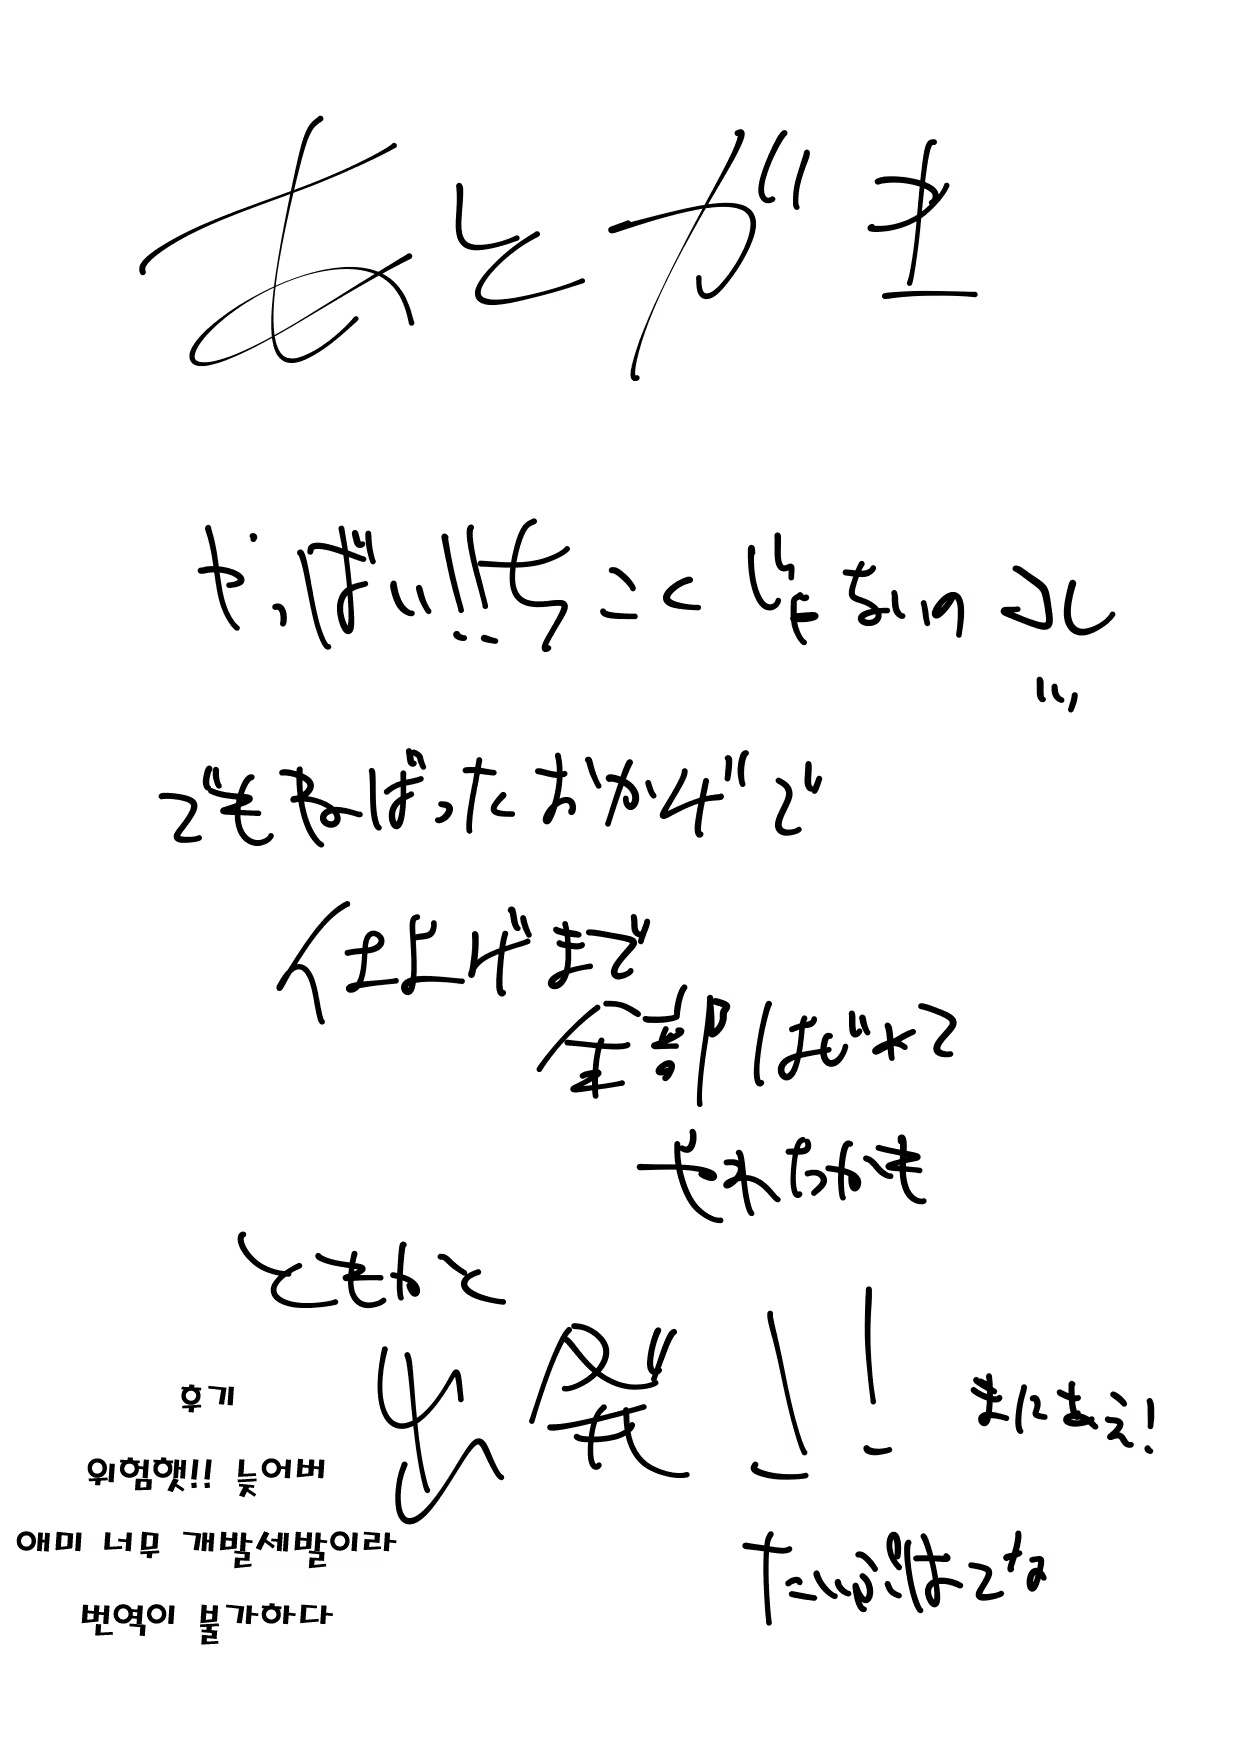 あとがき
やっばい!!ちこくじゃないのコレ
…
でもねばったおかげで
仕上げまで
全部はじめて
やれたかも
ともかと
出発!!
まにあえ!
たいぷはてな
후기
위험햇!! 늦어버
애미 너무 개발세발이라
번역이 불가하다